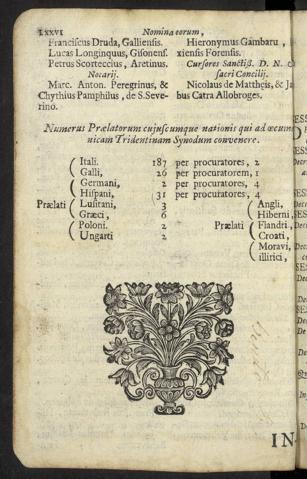 LXXVI Nomina eorum,
Franciscus Druda, Galliensis.
Lucas Longinquus, Gisonens.
Petrus Scorteccius, Aretinus.
Notarij.
Marc. Anton. Peregrinus, &
Chythius Pamphilus, de S. Seve-
rino.
Hieronymus Gambaru,
xiensis Forensis.
Cursores Sanctiss. D. N.
sacri Concilij.
Nicolaus de Matthęis, &
bus Catra Allobroges.
Numerus Prælatorum cujuscumque nationis qui ad œcum
nicam Tridentinam Synodum convenere.
Itali. 187 per procuratores, 2
Galli, 26 per procuratorem, 1
Germani, 2 per procuratores, 4
Hispani, 31 per procuratores, 4
Prælati
Lusitani, 3
Græci, 6
Poloni. 2
Ungari 2
Prælati
Angli,
Hiberni,
Flandri,
Croati,
Moravi,
illirici,
IN